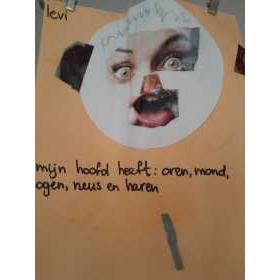 levi
mijn hoofd heeft: oren, mond,
ogen, neus en haren